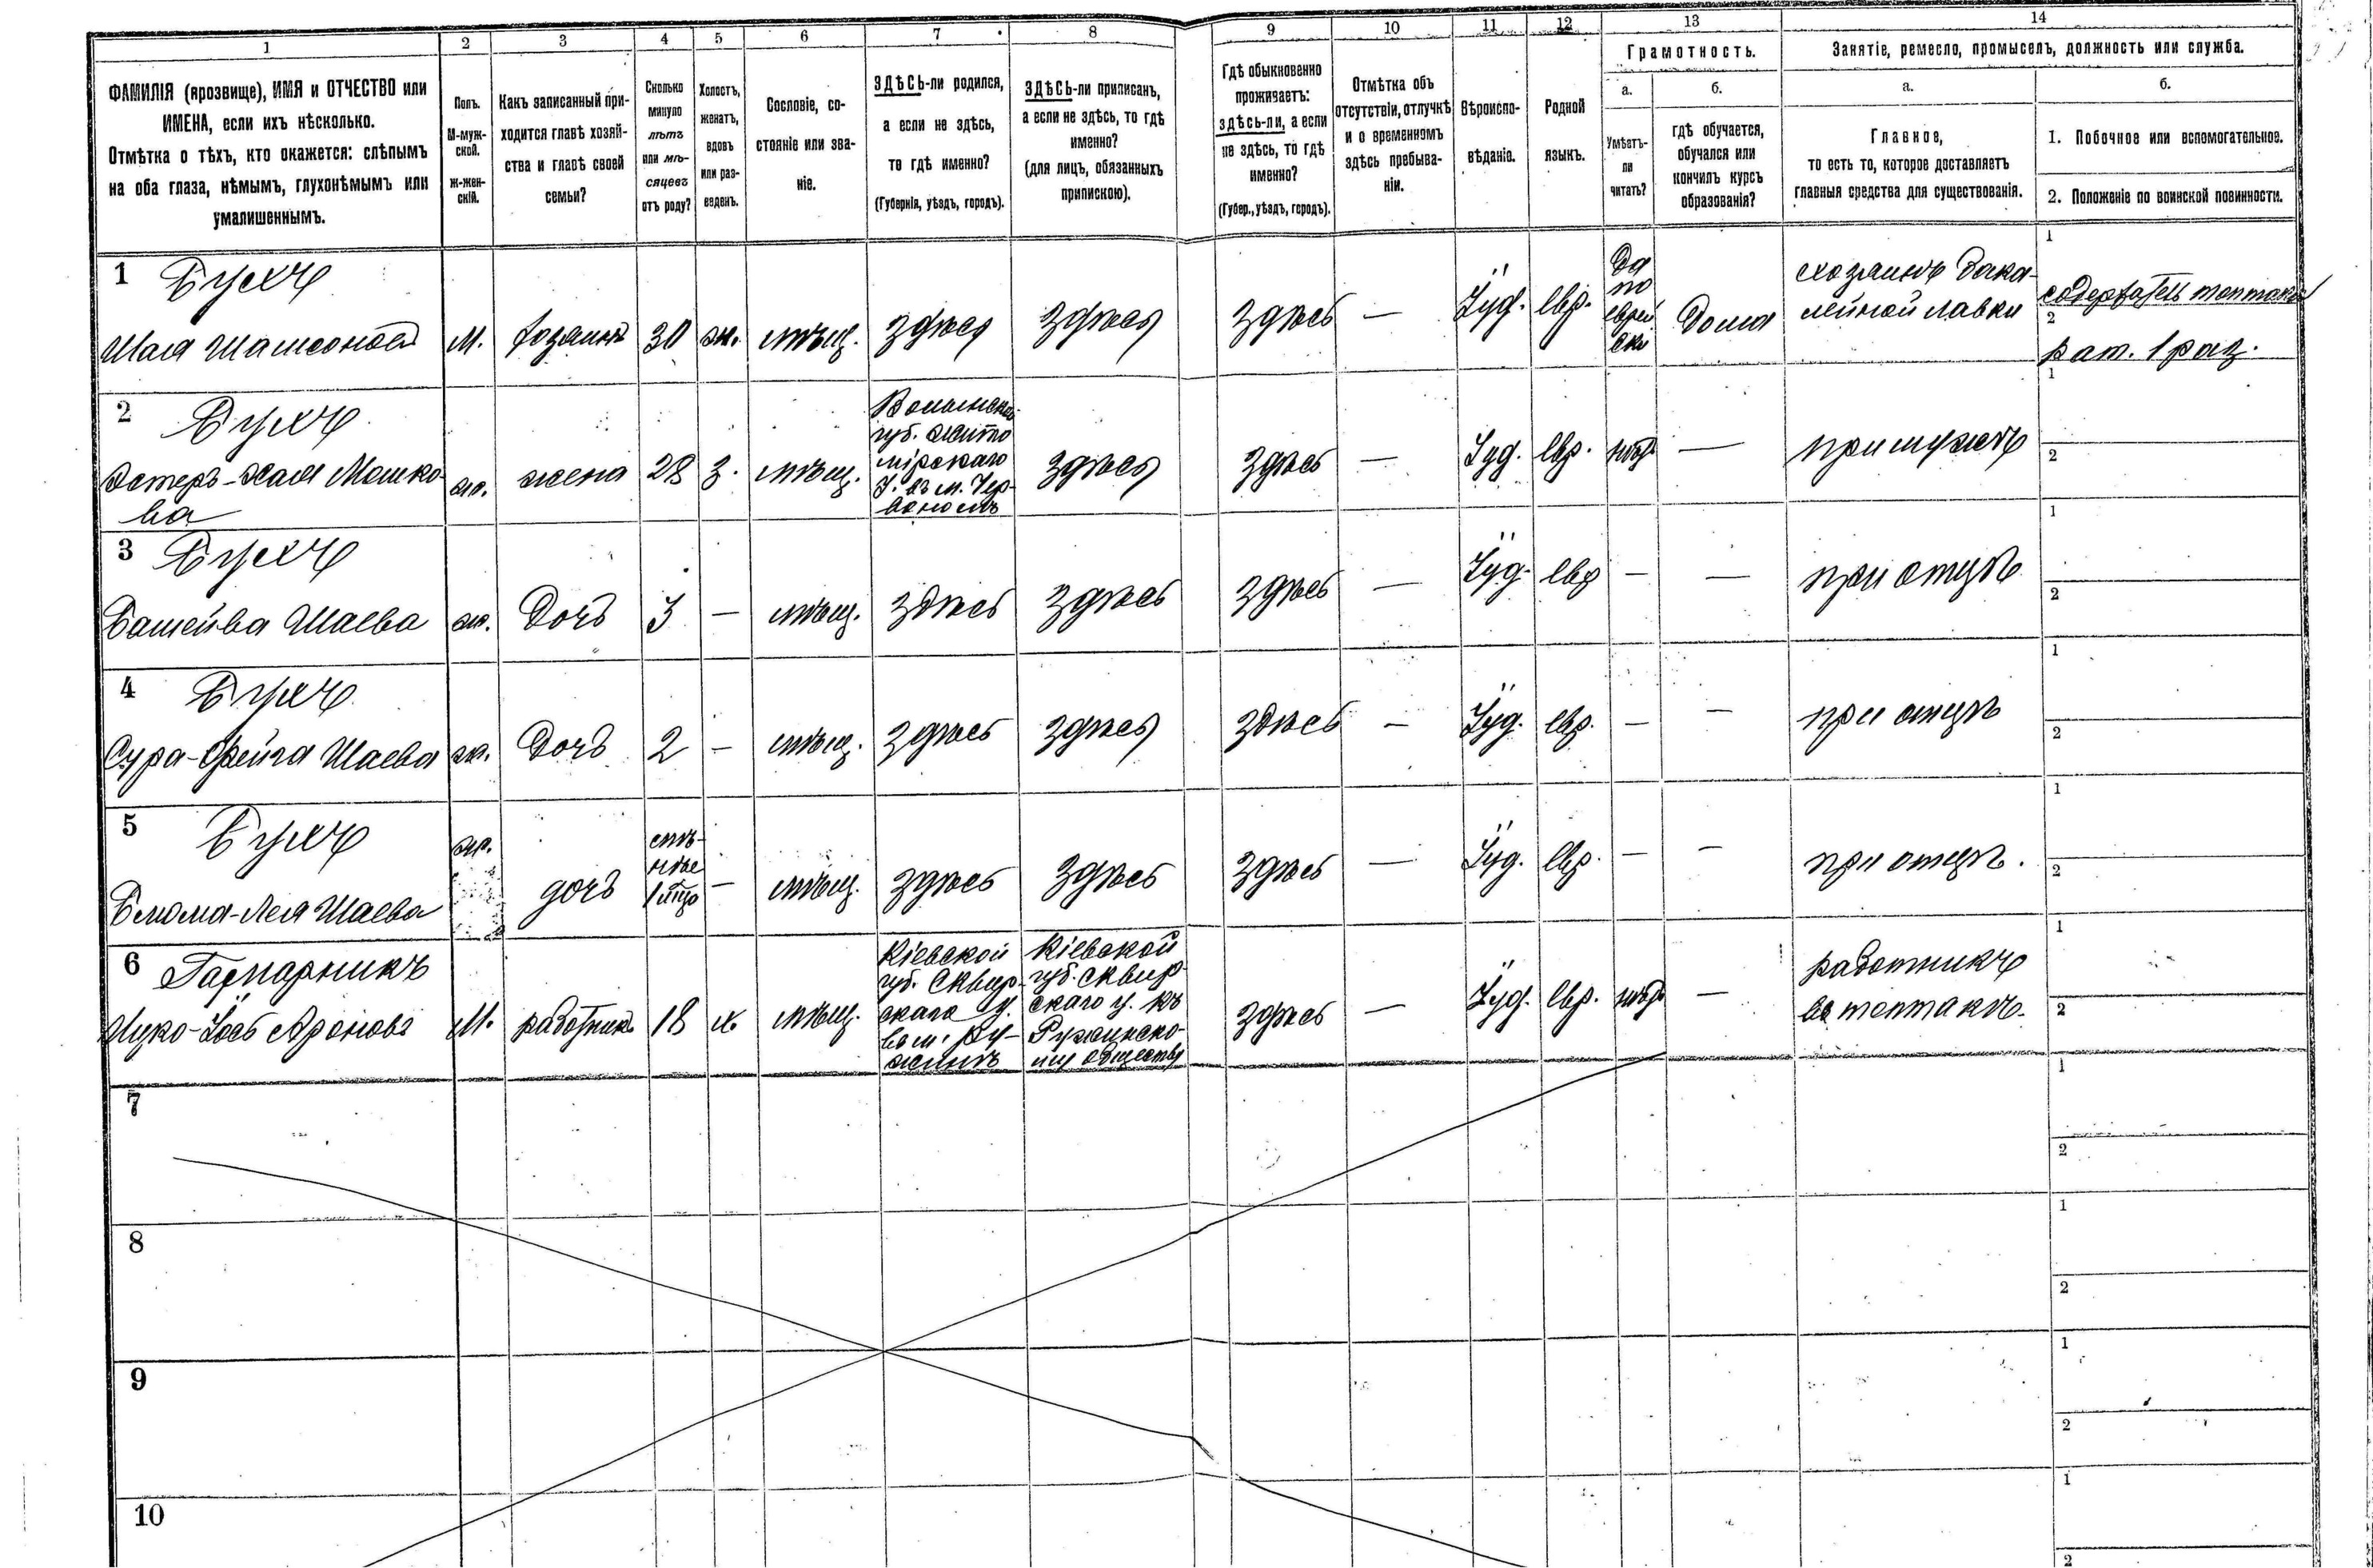 1 2 3 4 5 6 7 8 9 10 11 12 13 14
ФАМИЛІЯ (прозвище), ИМЯ и ОТЧЕСТВО или
ИМЕНА, если ихъ нѣсколько.
Отмѣтка о тѣхъ, кто окажется: слѣпымъ
на оба глаза, нѣмымъ, глухонѣмымъ или
умалишеннымъ.
Полъ.
М-муж-
ской.
ж-жен-
скій.
Какъ записанный при-
ходится главѣ хозяй-
ства и главѣ своей
семьи?
Сколько
минуло
лѣтъ
или мѣ-
сяцевъ
отъ роду?
Холостъ,
женатъ,
вдовъ
или раз-
веденъ.
Сословіе, со-
стояніе или зва-
ніе.
ЗДѢСЬ-ли родился,
а если не здѣсь,
то гдѣ именно?
(Губернія, уѣздъ, городъ).
ЗДѢСЬ-ли приписанъ,
а если не здѣсь, то гдѣ
именно?
(для лицъ, обязанныхъ
припискою).
Гдѣ обыкновенно
проживаетъ:
здѣсь-ли, а если
не здѣсь, то гдѣ
именно?
(Губер., уѣздъ, городъ).
Отмѣтка объ
отсутствіи, отлучкѣ
и о временномъ
здѣсь пребыва-
ніи.
Вѣроиспо-
вѣданіе.
Родной
языкъ.
Грамотность.
а.
Умѣетъ-
ли
читать?
б.
гдѣ обучается,
обучался или
кончилъ курсъ
образованія?
Занятіе, ремесло, промыселъ, должность или служба.
а.
Главное,
то есть то, которое доставляетъ
главныя средства для существованія.
б.
1. Побочное или вспомогательное.
2. Положеніе по воинской повинности.
1
Бухъ
Шая
М. хозяинъ 30 ж. мѣщ. здѣсь здѣсь здѣсь — Іуд. евр.
Да
по
еврей
ски
Дома
хозяинъ бака-
лейной лавки
1
содержатель топтака
2
рат. 1 раз.
2
Бухъ
Эстеръ-Хая Мошко-
ва
ж. жена 28 з. мѣщ.
Волынской
губ. Жито
мірскаго
у. въ м. Чер-
здѣсь здѣсь — Іуд. евр. нѣтъ — при мужѣ
1
2
3
Бухъ
Башейва Шаева
ж. Дочь 3 — мѣщ. здѣсь здѣсь здѣсь — Іуд. евр — — при отцѣ
1
2
4
Бухъ
Сура-Фейга Шаева
ж. Дочь 2 — мѣщ. здѣсь здѣсь здѣсь — Іуд. евр. — — при отцѣ
1
2
5
Бухъ
Блюма-Лея Шаева
ж. дочь
— мѣщ. здѣсь здѣсь здѣсь — Іуд. евр. — — при отцѣ.
1
2
6
Ицко-Іось Ароновъ
М. работникъ 18 х. мѣщ.
Кіевской
губ. Сквир-
скаго у.
въ м. Ру-
жинѣ
Кіевской
губ. Сквир-
скаго у. къ
Ружинско-
му обществу
здѣсь — Іуд. евр. нѣтъ —
работникъ
въ топтакѣ.
1
2
7
1
2
8
1
2
9
1
2
10
1
2